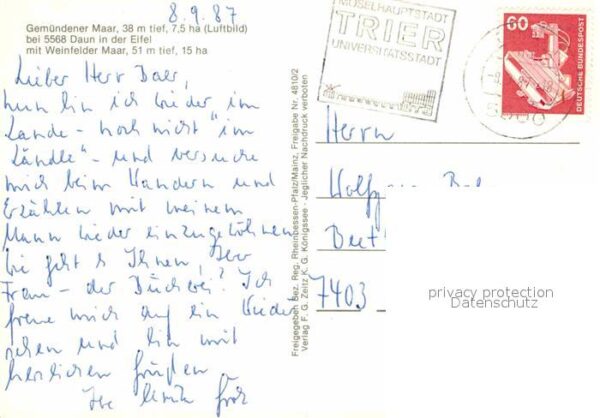 8.9.87
Gemündener Maar, 38 m tief, 7,5 ha (Luftbild)
bei 5568 Daun in der Eifel
mit Weinfelder Maar, 51 m tief, 15 ha
Lieber Herr
nun bin ich wieder im
Lande - noch nicht "im
Ländle" - und versuche
mich beim Wandern und
Erzählen mit meinem
Mann wieder einzugewöhnen.
Wie geht's Ihnen, der
Frau - der Bücherei? Ich
freue mich auf ein Wieder-
sehen und bin mit
herzlichen Grüßen
Ihre
Freigegeben Bez. Reg. Rheinhessen-Pfalz/Mainz, Freigabe Nr. 4810/2
Verlag F. G. Zeitz K. G. Königssee - Jeglicher Nachdruck verboten
MOSELHAUPTSTADT
TRIER
UNIVERSITÄTSSTADT
60
DEUTSCHE BUNDESPOST
Herrn
7403
privacy protection
Datenschutz